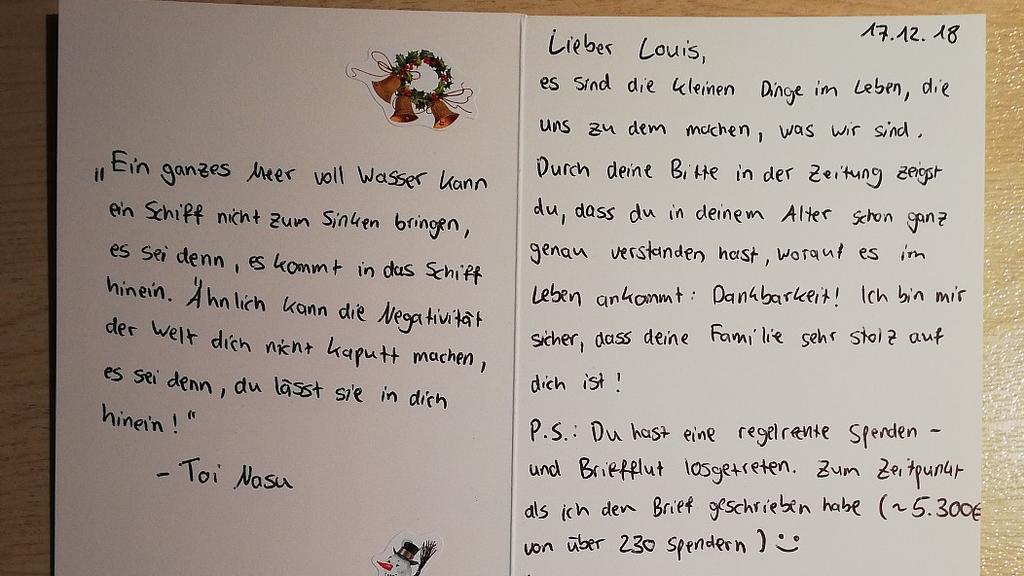 „Ein ganzes Meer voll Wasser kann
ein Schiff nicht zum Sinken bringen,
es sei denn, es kommt in das Schiff
hinein. Ähnlich kann die Negativität
der Welt dich nicht kaputt machen,
es sei denn, du lässt sie in dich
hinein!“
- Toi Nasu
17.12.18
Lieber Louis,
es sind die kleinen Dinge im Leben, die
uns zu dem machen, was wir sind.
Durch deine Bitte in der Zeitung zeigst
du, dass du in deinem Alter schon ganz
genau verstanden hast, worauf es im
Leben ankommt: Dankbarkeit! Ich bin mir
sicher, dass deine Familie sehr stolz auf
dich ist!
P.S.: Du hast eine regelrechte Spenden-
und Briefflut losgetreten. Zum Zeitpunkt
als ich den Brief geschrieben habe (~5.300€
von über 230 Spendern) :)